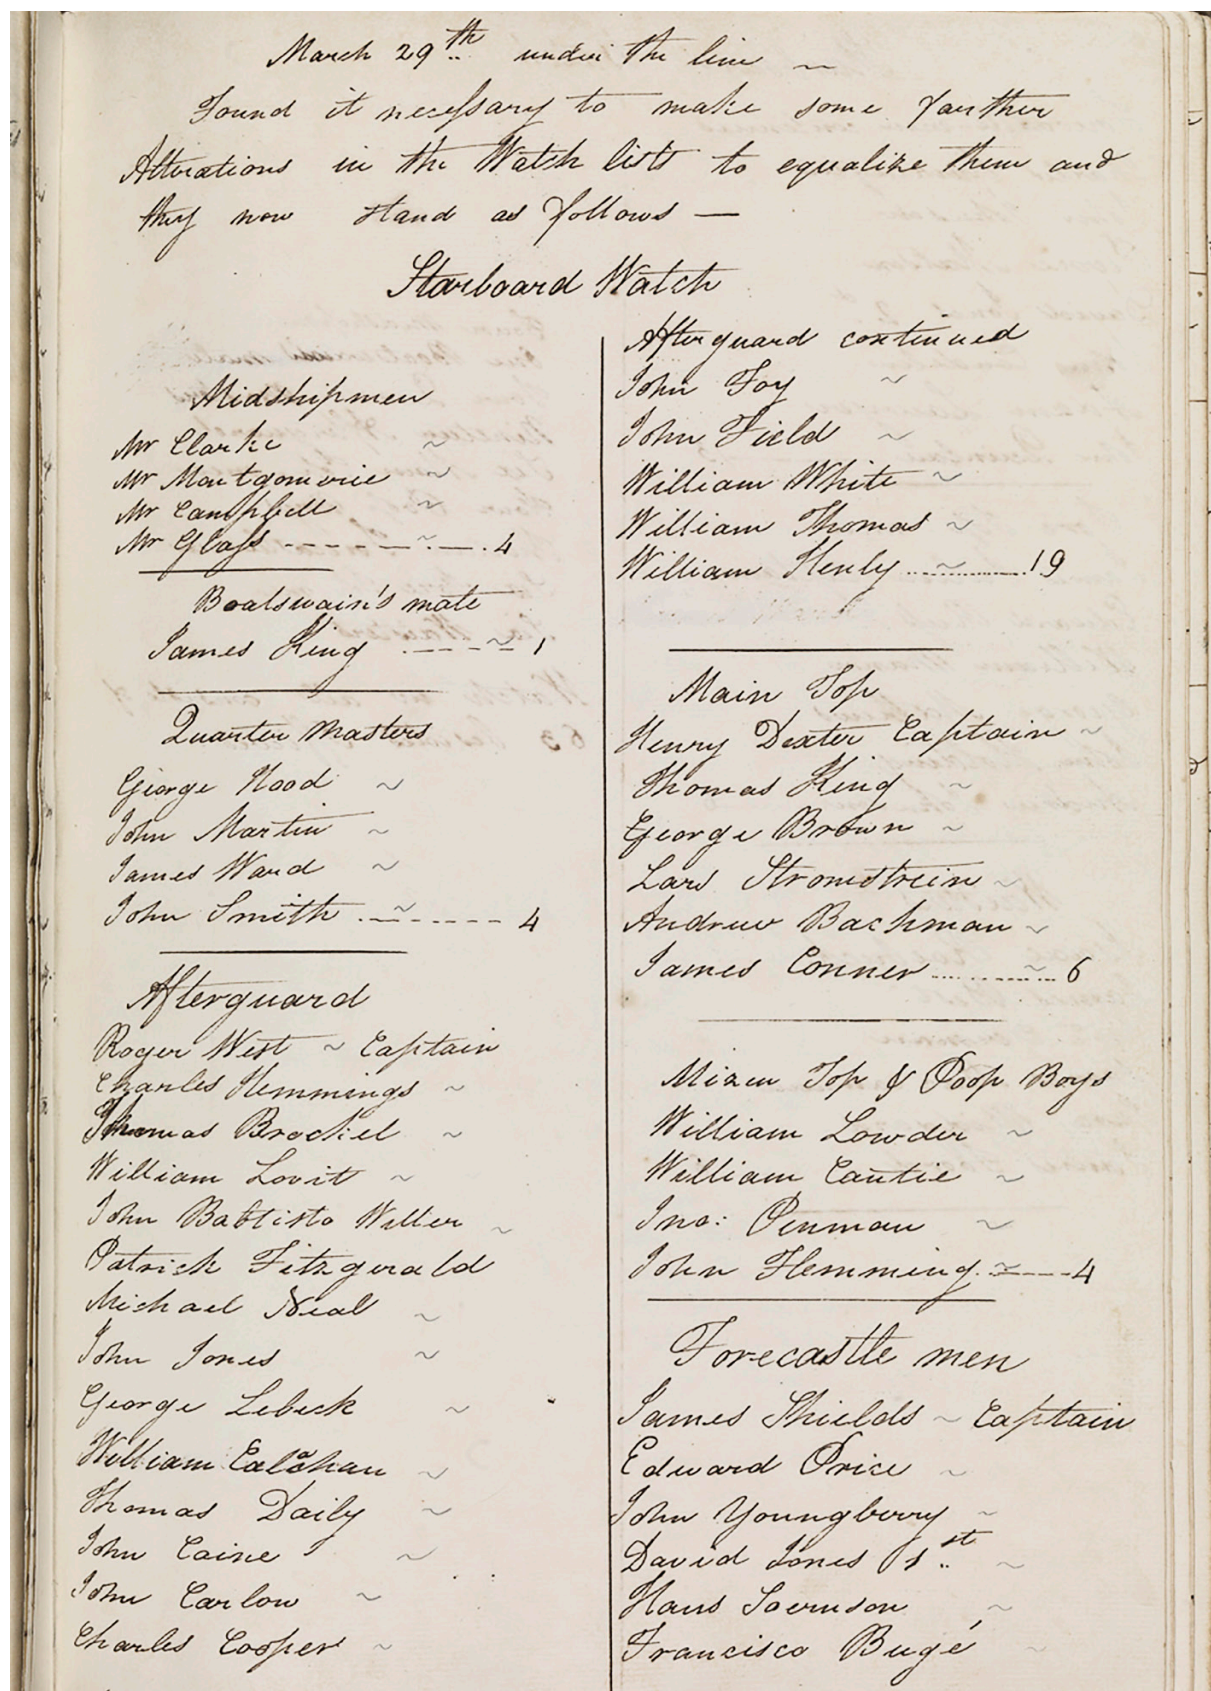 March 29th under the line ~
Found it necessary to make some farther
Alterations in the Watch lists to equalize them and
they now stand as follows —
Starboard Watch
Midshipmen
Mr Clarke ~
Mr Montgomerie ~
Mr Campbell ~
Mr Glass ----~--. 4
Boatswain's mate
James King ---~- 1
Quarter Masters
George Hood ~
John Martin ~
James Ward ~
John Smith --~----- 4
Afterguard
Roger West ~ Captain
Charles Hemmings ~
Thomas Brockel ~
William Lovit ~
John Babtisto Witter ~
Patrick Fitzgerald
Michael Neal ~
John Jones ~
George Lebeck ~
William Calahan ~
Thomas Daily ~
John Caine ~
John Carlow ~
Charles Cooper ~
Afterguard continued
John Foy ~
John Field ~
William White ~
William Thomas ~
William Henly ...~........ 19
Main Top
Henry Dexter Captain ~
Thomas King ~
George Brown ~
Lars Stromstrein ~
Andrew Bachman ~
James Conner ........~.. 6
Mizen Top & Poop Boys
William Lowder ~
William Cautie ~
Jno: Penman ~
John Flemming.~---4
Forecastle men
James Shields ~ Captain
Edward Price ~
John Youngberry ~
David Jones 1st ~
Hans Soernson ~
Francisco Bugé ~